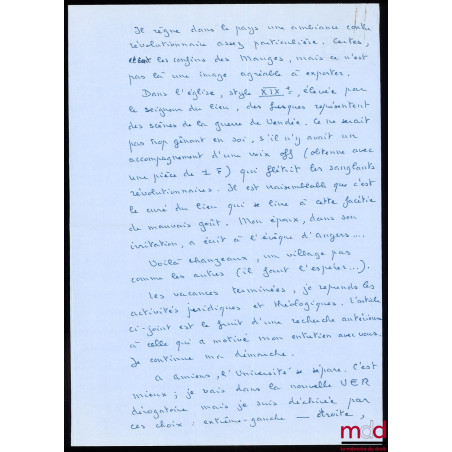 Il règne dans le pays une ambiance contre
révolutionnaire assez particulière. Certes,
les confins des Mauges, mais ce n'est
pas là une image agréable à exporter.
Dans l'église, style XIXe, élevée par
le seigneur du lieu, des fresques représentent
des scènes de la guerre de Vendée. Ce ne serait
pas trop gênant en soi, s'il n'y avait un
accompagnement d'une voix off (obtenue avec
une pièce de 1 F) qui flétrit les sanglants
révolutionnaires. Il est vraisemblable que c'est
le curé du lieu qui se livre à cette facétie
de mauvais goût. Mon époux, dans son
irritation, a écrit à l'évêque d'Angers....
Voilà Chanzeaux, un village pas
comme les autres (il faut l'espérer...).
Les vacances terminées, je reprends les
activités juridiques et théologiques. L'article
ci-joint est le fruit d'une recherche antérieure
à celle qui a motivé mon entretien avec vous.
Je continue ma démarche.
A Amiens, l'Université se sépare. C'est
mieux ; je vais dans la nouvelle UER
dérogatoire mais je suis déchirée par
ces choix : extrême-gauche — droite,
mdd